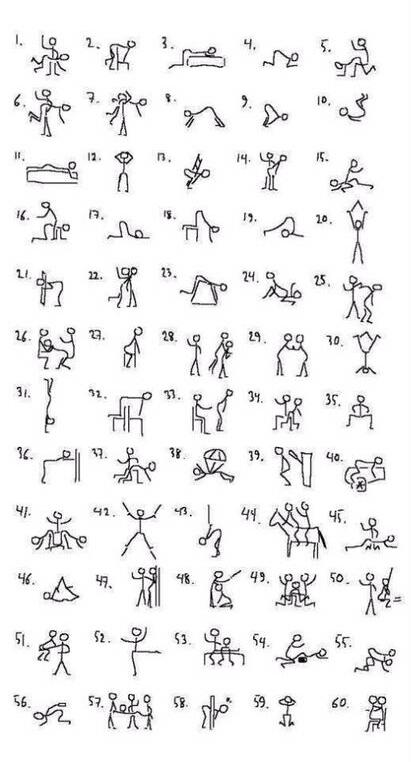 1. 2. 3. 4. 5.
6. 7. 8. 9. 10.
11. 12. 13. 14. 15.
16. 17. 18. 19. 20.
21. 22. 23. 24. 25.
26. 27. 28. 29. 30.
31. 32. 33. 34. 35.
36. 37. 38. 39. 40.
41. 42. 43. 44. 45.
46. 47. 48. 49. 50.
51. 52. 53. 54. 55.
56. 57. 58. 59. 60.